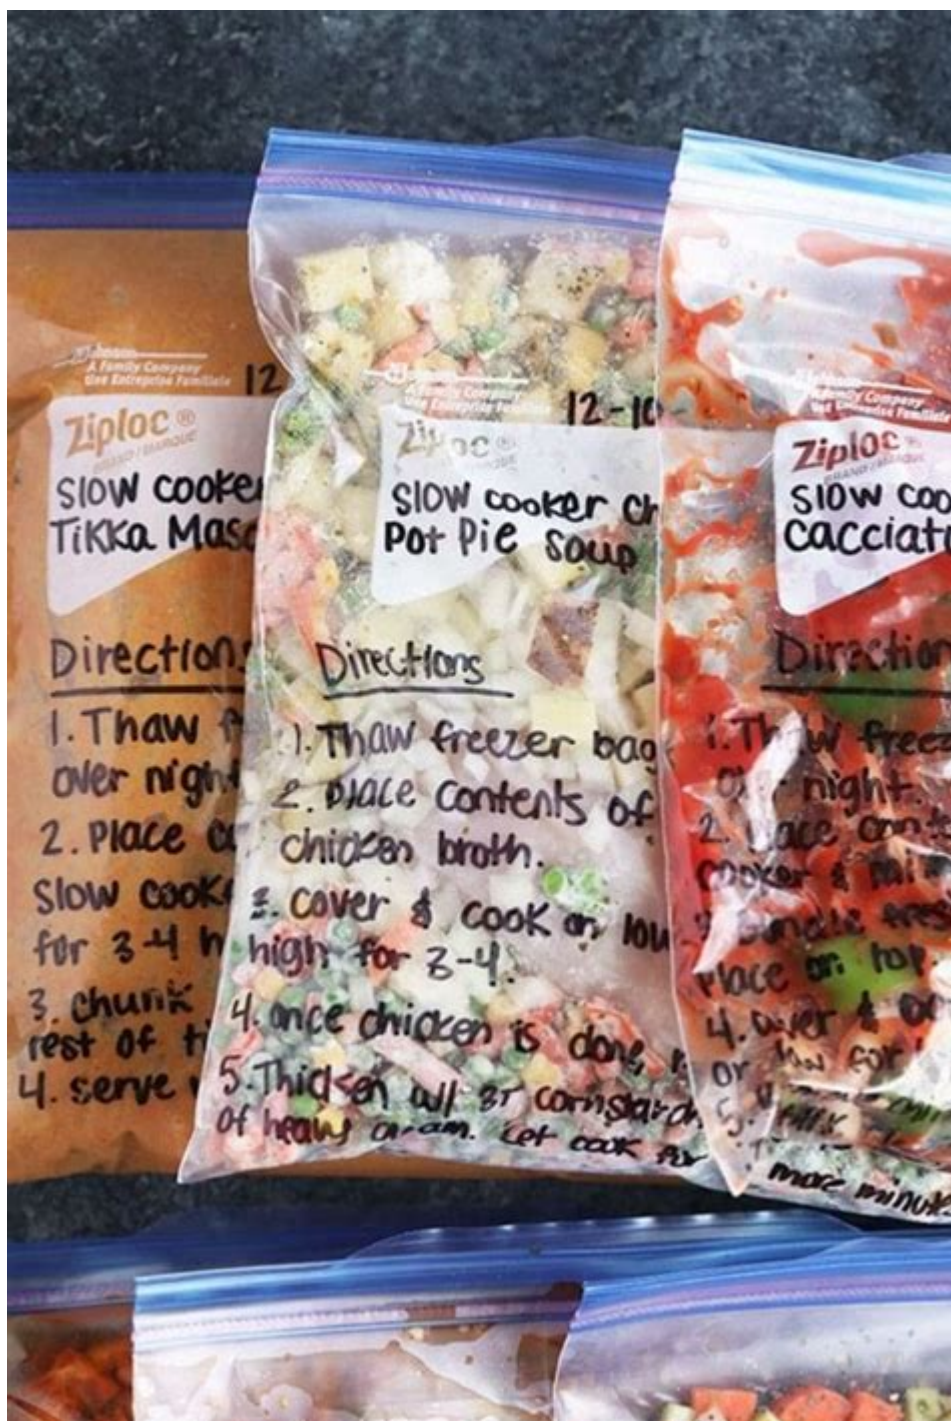 A Family Company
Une Entreprise Familiale
12
Ziploc®
BRAND / MARQUE
Slow cooker
Tikka Masa
Directions
1. Thaw f
over night
2. Place co
slow cooke
for 3-4 h
3. chunk
rest of ti
4. serve
A Family Company
Une Entreprise Familiale
12-10
Ziploc®
MARQUE
Slow cooker Ch
Pot Pie Soup
Directions
1. Thaw freezer bag
2. Place contents of
chicken broth.
3. cover & cook on low
high for 3-4.
4. once chicken is done,
5. Thicken w/ 3T cornstarch
of heavy cream. Let cook for
Family Company
Une Entreprise Familiale
Ziploc®
BRAND / MARQUE
Slow coo
Cacciato
Direction
1. Thaw freez
over night.
2. Place cont
cooker & mi
fres
Place on top.
4. cover &
or low for
5. mix
more minutes